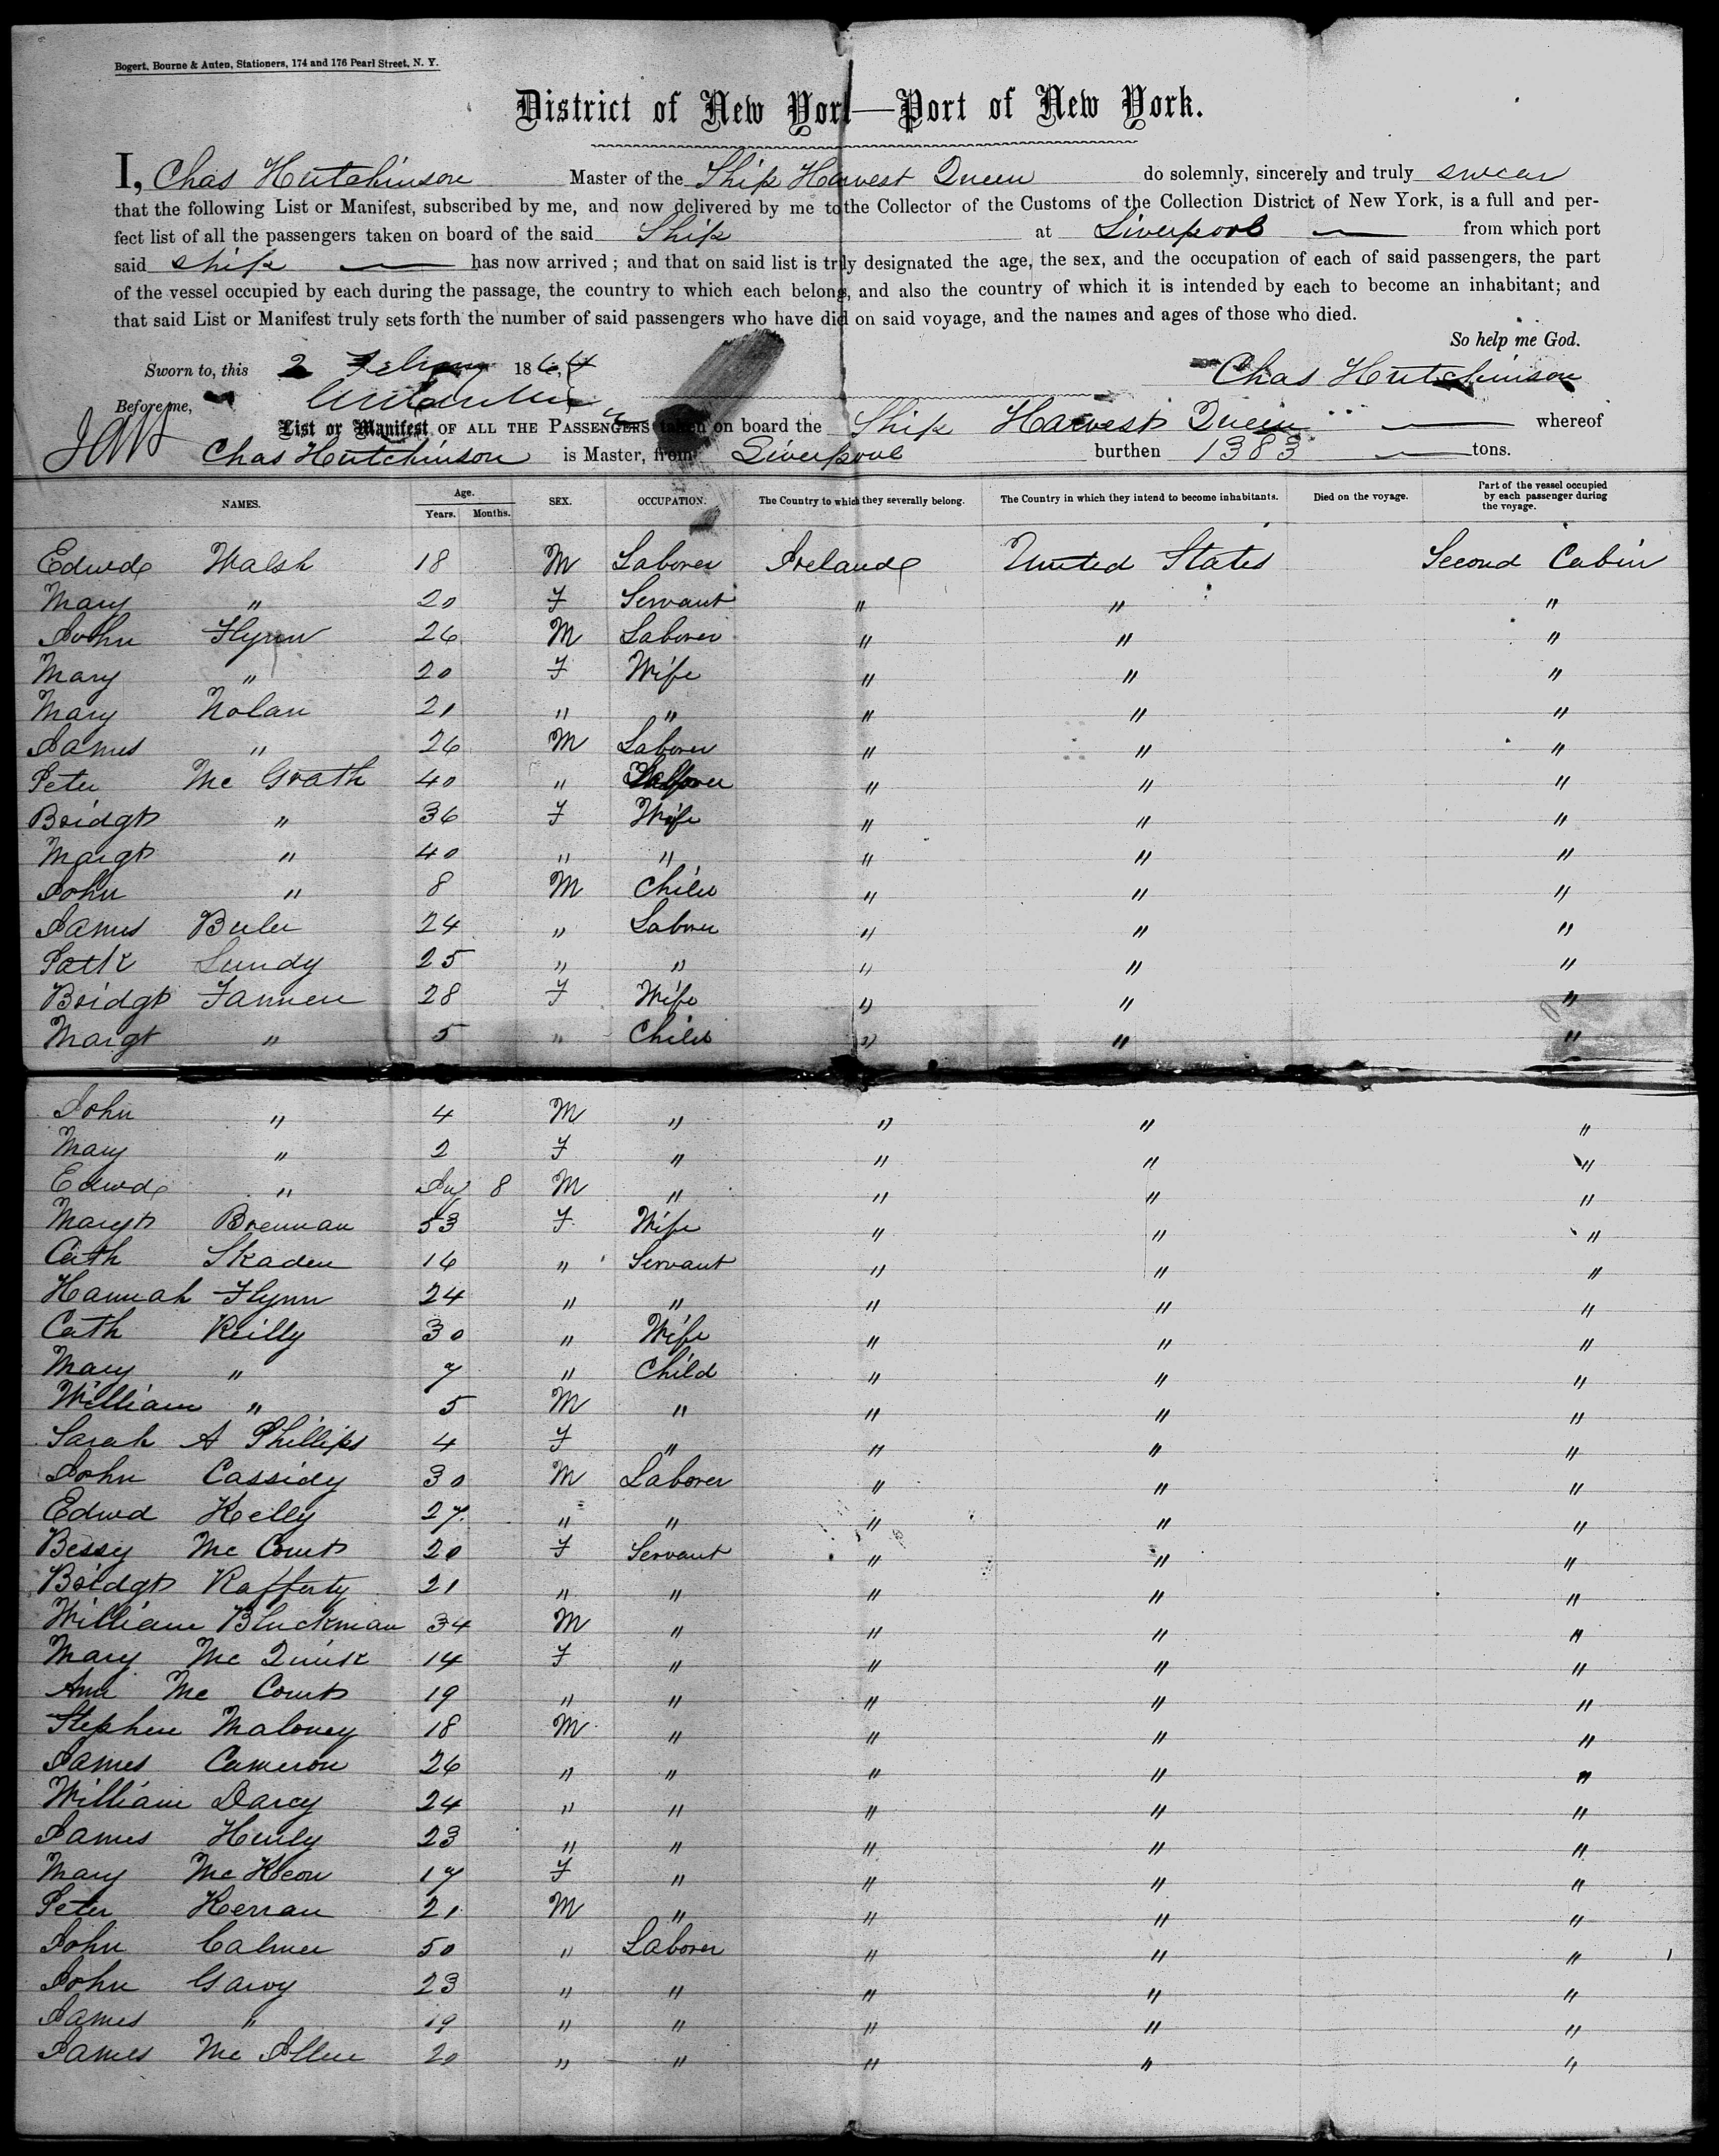 Bogert, Bourne & Auten, Stationers, 174 and 176 Pearl Street, N. Y.
District of New York—Port of New York.
I, Chas Hutchinson Master of the Ship Harvest Queen do solemnly, sincerely and truly swear
that the following List or Manifest, subscribed by me, and now delivered by me to the Collector of the Customs of the Collection District of New York, is a full and per-
fect list of all the passengers taken on board of the said Ship at Liverpool — from which port
said ship — has now arrived; and that on said list is truly designated the age, the sex, and the occupation of each of said passengers, the part
of the vessel occupied by each during the passage, the country to which each belong, and also the country of which it is intended by each to become an inhabitant; and
that said List or Manifest truly sets forth the number of said passengers who have died on said voyage, and the names and ages of those who died.
So help me God.
Sworn to, this 2 186,4
Chas Hutchinson
Before me,
List or Manifest OF ALL THE PASSENGERS taken on board the Ship Harvest Queen — whereof
Chas Hutchinson is Master, from Liverpool burthen 1383 — tons.
NAMES. Age. Years. Months. SEX. OCCUPATION. The Country to which they severally belong. The Country in which they intend to become inhabitants. Died on the voyage. Part of the vessel occupied by each passenger during the voyage.
Edwd Walsh 18 M Laborer Ireland United States Second Cabin
Mary " 20 F Servant " " "
John Flynn 26 M Laborer " " "
Mary " 20 F Wife " " "
Mary Nolan 21 " " " " "
James " 26 M Laborer " " "
Peter Mc Grath 40 " Laborer " " "
Bridgt " 36 F Wife " " "
Margt " 40 " " " " "
John " 8 M Child " " "
James 24 " Laborer " " "
Patk Lundy 25 " " " " "
Bridgt Fannen 28 F Wife " " "
Margt " 5 " Child " " "
John " 4 M " " " "
Mary " 2 F " " " "
Edwd " Inf 8 M " " " "
Margt Brennan 53 F Wife " " "
Cath Skaden 16 " Servant " " "
Hannah Flynn 24 " " " " "
Cath Reilly 30 " Wife " " "
Mary " 7 " Child " " "
William " 5 M " " " "
Sarah A Phillips 4 F " " " "
John Cassidy 30 M Laborer " " "
Edwd Kelly 27 " " " " "
Bessy Mc Court 20 F Servant " " "
Bridgt Rafferty 21 " " " " "
William Bluckman 34 M " " " "
Mary Mc Quisk 14 F " " " "
Ann Mc Court 19 " " " " "
Stephen Maloney 18 M " " " "
James Cameron 26 " " " " "
William Darcy 24 " " " " "
James Henly 23 " " " " "
Mary McKeon 17 F " " " "
Peter Kernan 21 M " " " "
John Calmer 50 " Laborer " " "
John Garvy 23 " " " " "
James " 19 " " " " "
James Mc 20 " " " " "